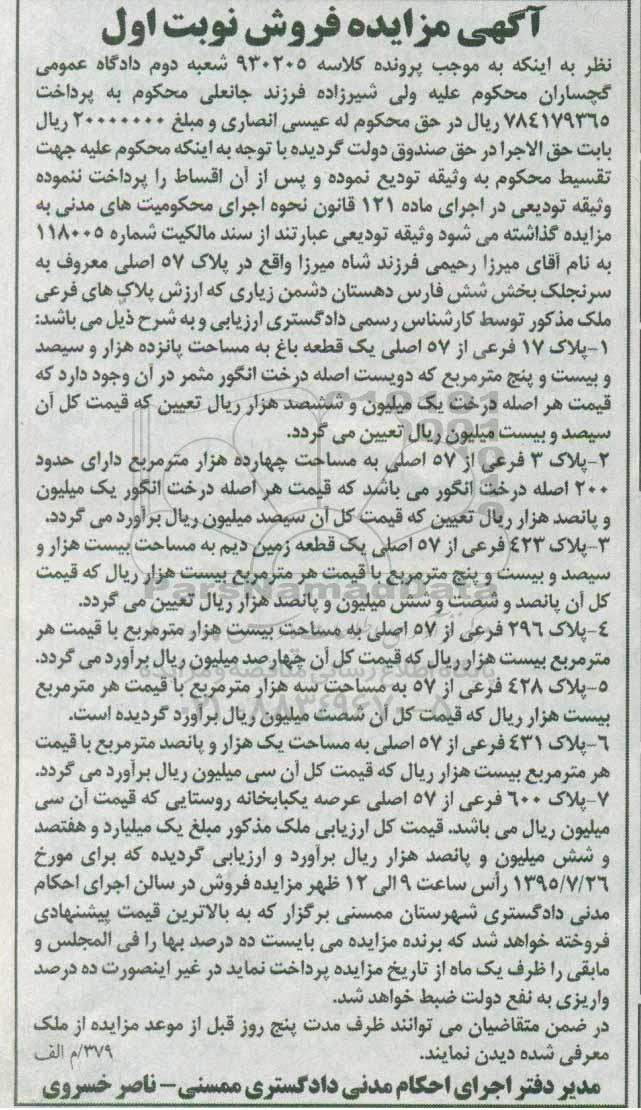 آگهی مزایده فروش نوبت اول
نظر به اینکه به موجب پرونده کلاسه ۹۳۰۲۰۵ شعبه دوم دادگاه عمومی
گچساران محکوم علیه ولی شیرزاده فرزند جانعلی محکوم به پرداخت
۷۸٤۱۷۹۳٦۵ ریال در حق محکوم له عیسی انصاری و مبلغ ۲۰۰۰۰۰۰۰ ریال
بابت حق الاجرا در حق صندوق دولت گردیده با توجه به اینکه محکوم علیه جهت
تقسیط محکوم به وثیقه تودیع نموده و پس از آن اقساط را پرداخت ننموده
وثیقه تودیعی در اجرای ماده ۱۲۱ قانون نحوه اجرای محکومیت های مدنی به
مزایده گذاشته می شود وثیقه تودیعی عبارتند از سند مالکیت شماره ۱۱۸۰۰۵
به نام آقای میرزا رحیمی فرزند شاه میرزا واقع در پلاک ۵۷ اصلی معروف به
سرنجلک بخش شش فارس دهستان دشمن زیاری که ارزش پلاک های فرعی
ملک مذکور توسط کارشناس رسمی دادگستری ارزیابی و به شرح ذیل می باشد:
۱-پلاک ۱۷ فرعی از ۵۷ اصلی یک قطعه باغ به مساحت پانزده هزار و سیصد
و بیست و پنج مترمربع که دویست اصله درخت انگور مثمر در آن وجود دارد که
قیمت هر اصله درخت یک میلیون و ششصد هزار ریال تعیین که قیمت کل آن
سیصد و بیست میلیون ریال تعیین می گردد.
۲-پلاک ۳ فرعی از ۵۷ اصلی به مساحت چهارده هزار مترمربع دارای حدود
۲۰۰ اصله درخت انگور می باشد که قیمت هر اصله درخت انگور یک میلیون
و پانصد هزار ریال تعیین که قیمت کل آن سیصد میلیون ریال برآورد می گردد.
۳-پلاک ٤۲۳ فرعی از ۵۷ اصلی یک قطعه زمین دیم به مساحت بیست هزار و
سیصد و بیست و پنج مترمربع با قیمت هر مترمربع بیست هزار ریال که قیمت
کل آن پانصد و شصت و شش میلیون و پانصد هزار ریال تعیین می گردد.
٤-پلاک ۲۹٦ فرعی از ۵۷ اصلی به مساحت بیست هزار مترمربع با قیمت هر
مترمربع بیست هزار ریال که قیمت کل آن چهارصد میلیون ریال برآورد می گردد.
۵-پلاک ٤۲۸ فرعی از ۵۷ به مساحت سه هزار مترمربع با قیمت هر مترمربع
بیست هزار ریال که قیمت کل آن شصت میلیون ریال برآورد گردیده است.
٦-پلاک ٤۳۱ فرعی از ۵۷ اصلی به مساحت یک هزار و پانصد مترمربع با قیمت
هر مترمربع بیست هزار ریال که قیمت کل آن سی میلیون ریال برآورد می گردد.
۷-پلاک ٦۰۰ فرعی از ۵۷ اصلی عرصه یکبابخانه روستایی که قیمت آن سی
میلیون ریال می باشد. قیمت کل ارزیابی ملک مذکور مبلغ یک میلیارد و هفتصد
و شش میلیون و پانصد هزار ریال برآورد و ارزیابی گردیده که برای مورخ
۱۳۹۵/۷/۲٦ رأس ساعت ۹ الی ۱۲ ظهر مزایده فروش در سالن اجرای احکام
مدنی دادگستری شهرستان ممسنی برگزار که به بالاترین قیمت پیشنهادی
فروخته خواهد شد که برنده مزایده می بایست ده درصد بها را فی المجلس و
مابقی را ظرف یک ماه از تاریخ مزایده پرداخت نماید در غیر اینصورت ده درصد
واریزی به نفع دولت ضبط خواهد شد.
در ضمن متقاضیان می توانند ظرف مدت پنج روز قبل از موعد مزایده از ملک
معرفی شده دیدن نمایند. ۳۷۹/م الف
مدیر دفتر اجرای احکام مدنی دادگستری ممسنی- ناصر خسروی
ParsNamadData